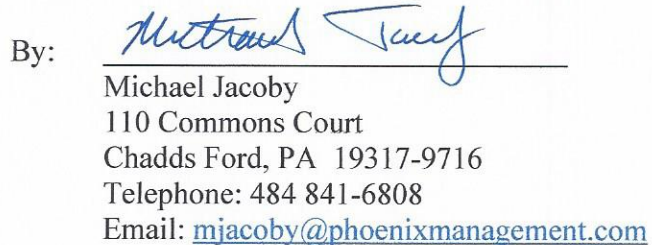 By: Michael Jacoby
Michael Jacoby
110 Commons Court
Chadds Ford, PA 19317-9716
Telephone: 484 841-6808
Email: mjacoby@phoenixmanagement.com